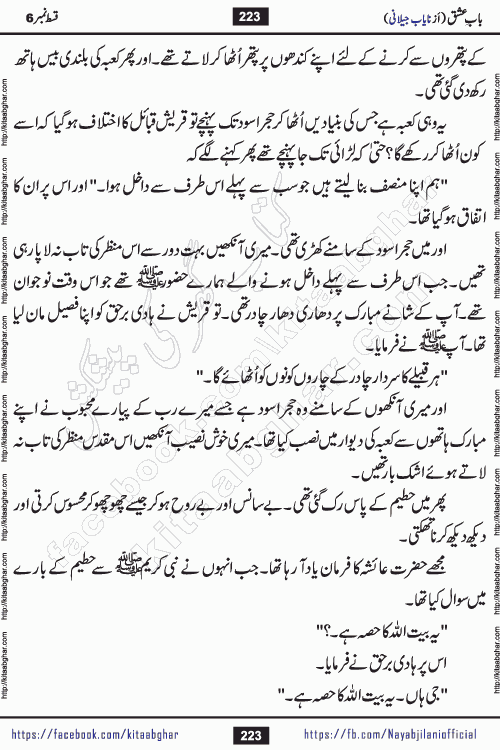 باب عشق (از نایاب جیلانی)
223
قسط نمبر 6
کے پتھروں سے کرنے کے لئے اپنے کندھوں پر پتھر اُٹھا کر لاتے تھے۔ اور پھر کعبہ کی بلندی بیس ہاتھ
رکھ دی گئی تھی۔
یہ وہی کعبہ ہے جس کی بنیادیں اُٹھا کر حجر اسود تک پہنچے تو قریش قبائل کا اختلاف ہو گیا کہ اسے
کون اُٹھا کر رکھے گا؟ حتیٰ کہ لڑائی تک جا پہنچے تھے پھر کہنے لگے کہ
"ہم اپنا منصف بنا لیتے ہیں جو سب سے پہلے اس طرف سے داخل ہوا۔" اور اس پر ان کا
اتفاق ہو گیا تھا۔
اور میں حجر اسود کے سامنے کھڑی تھی۔ میری آنکھیں بہت دور سے اس منظر کی تاب نہ لا پا رہی
تھیں۔ جب اس طرف سے پہلے داخل ہونے والے ہمارے حضور ﷺ تھے جو اس وقت نوجوان
تھے۔ آپ کے شانے مبارک پر دھاری دھار چادر تھی۔ تو قریش نے ہادی برحق کو اپنا فصیل مان لیا
تھا۔ آپ ﷺ نے فرمایا۔
"ہر قبیلے کا سردار چادر کے چاروں کونوں کو اُٹھائے گا۔"
اور میری آنکھوں کے سامنے وہ حجر اسود ہے جسے میرے رب کے پیارے محبوب نے اپنے
مبارک ہاتھوں سے کعبہ کی دیوار میں نصب کیا تھا۔ میری خوش نصیب آنکھیں اس مقدس منظر کی تاب نہ
لاتے ہوئے اشک بار تھیں۔
پھر میں حطیم کے پاس رک گئی تھی۔ بے سانس اور بے روح ہو کر جیسے چھو چھو کر محسوس کرتی اور
دیکھ دیکھ کر نا تھکتی۔
مجھے حضرت عائشہ کا فرمان یاد آ رہا تھا۔ جب انہوں نے نبی کریم ﷺ سے حطیم کے بارے
میں سوال کیا تھا۔
"یہ بیت اللہ کا حصہ ہے۔؟"
اس پر ہادی برحق نے فرمایا۔
"جی ہاں۔ یہ بیت اللہ کا حصہ ہے۔"
https://facebook.com/kitaabghar
223
https://fb.com/Nayabjilaniofficial
http://kitaabghar.com
کتاب گھر کی پیشکش
facebook.com/kitaabghar
kitaabghar.com